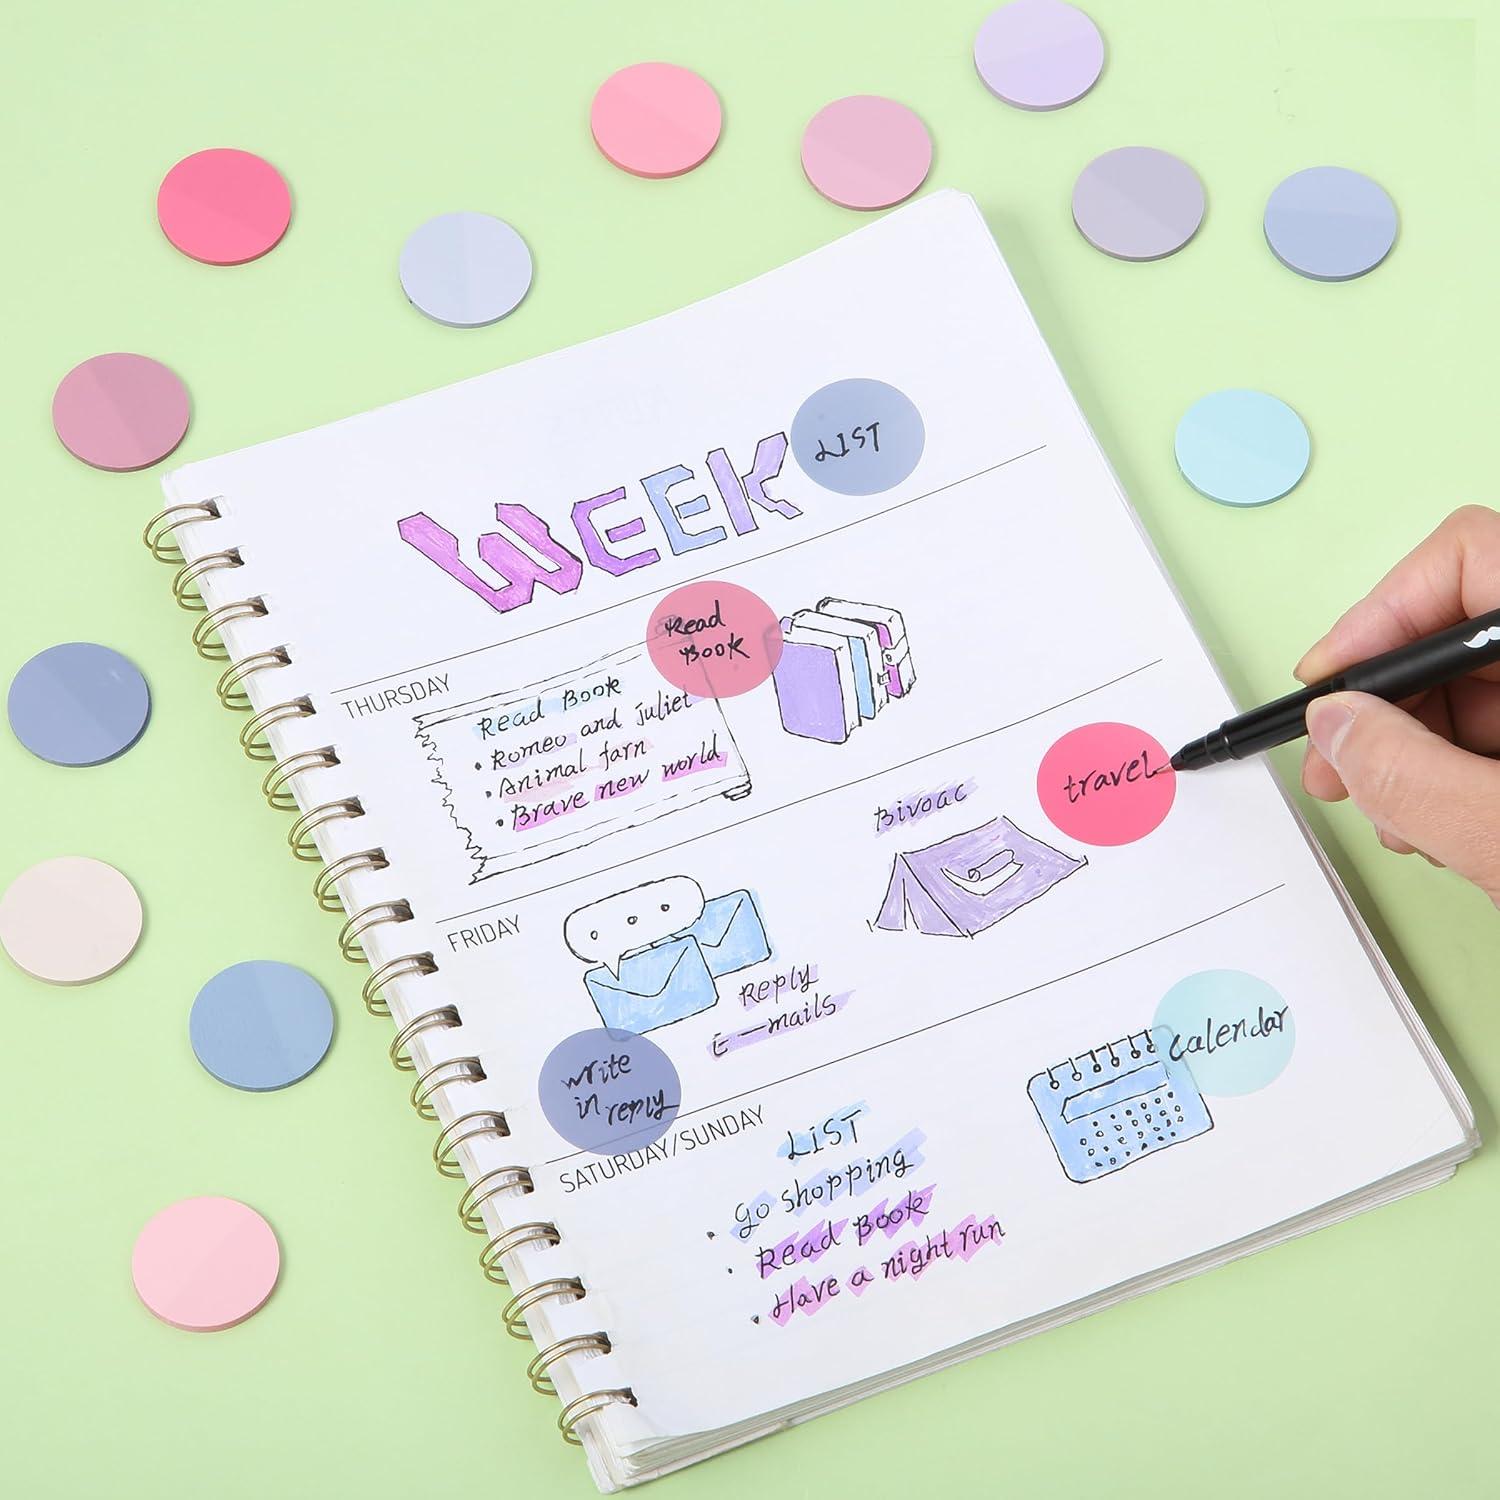 WEEK
LIST
THURSDAY
Read Book
• Romeo and juliet
• Animal farn
• Brave new world
Read
Book
FRIDAY
Reply
E-mails
Bivoac
travel
write
in reply
SATURDAY/SUNDAY
LIST
• go shopping
• Read Book
• Have a night run
calendar